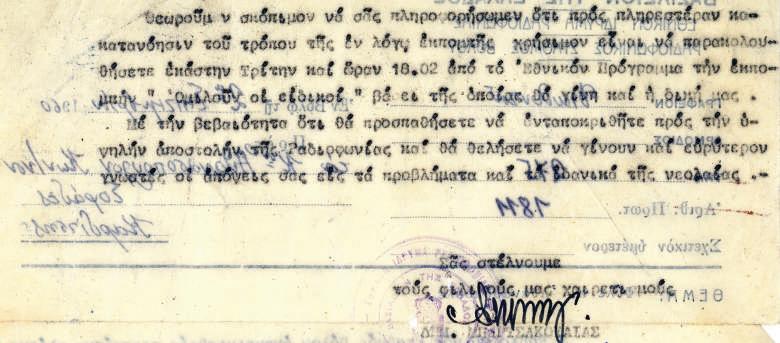 θεωροῦμ ν σκόπιμον νά σᾶς πληροφορήσωμεν ὅτι πρός πληρεστέραν κα-
κατανόησιν τοῦ τρόπου τῆς ἐν λόγῳ ἐκπομπῆς χρήσιμον εἶναι νά παρακολου-
θήσετε ἑκάστην Τρίτην καί ὥραν 18.02 ἀπό τό Ἐθνικόν Πρόγραμμα τήν ἐκπο-
μπήν " Ὁμιλοῦν οἱ εἰδικοί " βά ει τῆς ὁποίας θά γίνῃ καί ἡ δική μας .
Μέ τήν βεβαιότητα ὅτι θά προσπαθήσετε νά ἀνταποκριθῆτε πρός τήν ὑ-
ψηλήν ἀποστολήν τῆς Ραδιοφωνίας καί θά θελήσετε νά γίνουν καί εὐρύτερον
γνωστές οἱ ἀπόψεις σας εἰς τά προβλήματα καί τά ἰδανικά τῆς νεολαίας .-
1811
Ἀριθ. Πρωτ.
Σχετικόν ὑμέτερον
Σᾶς στέλνουμε
τούς φιλικούς μας χαιρετισμούς
ΘΕΜΑ: